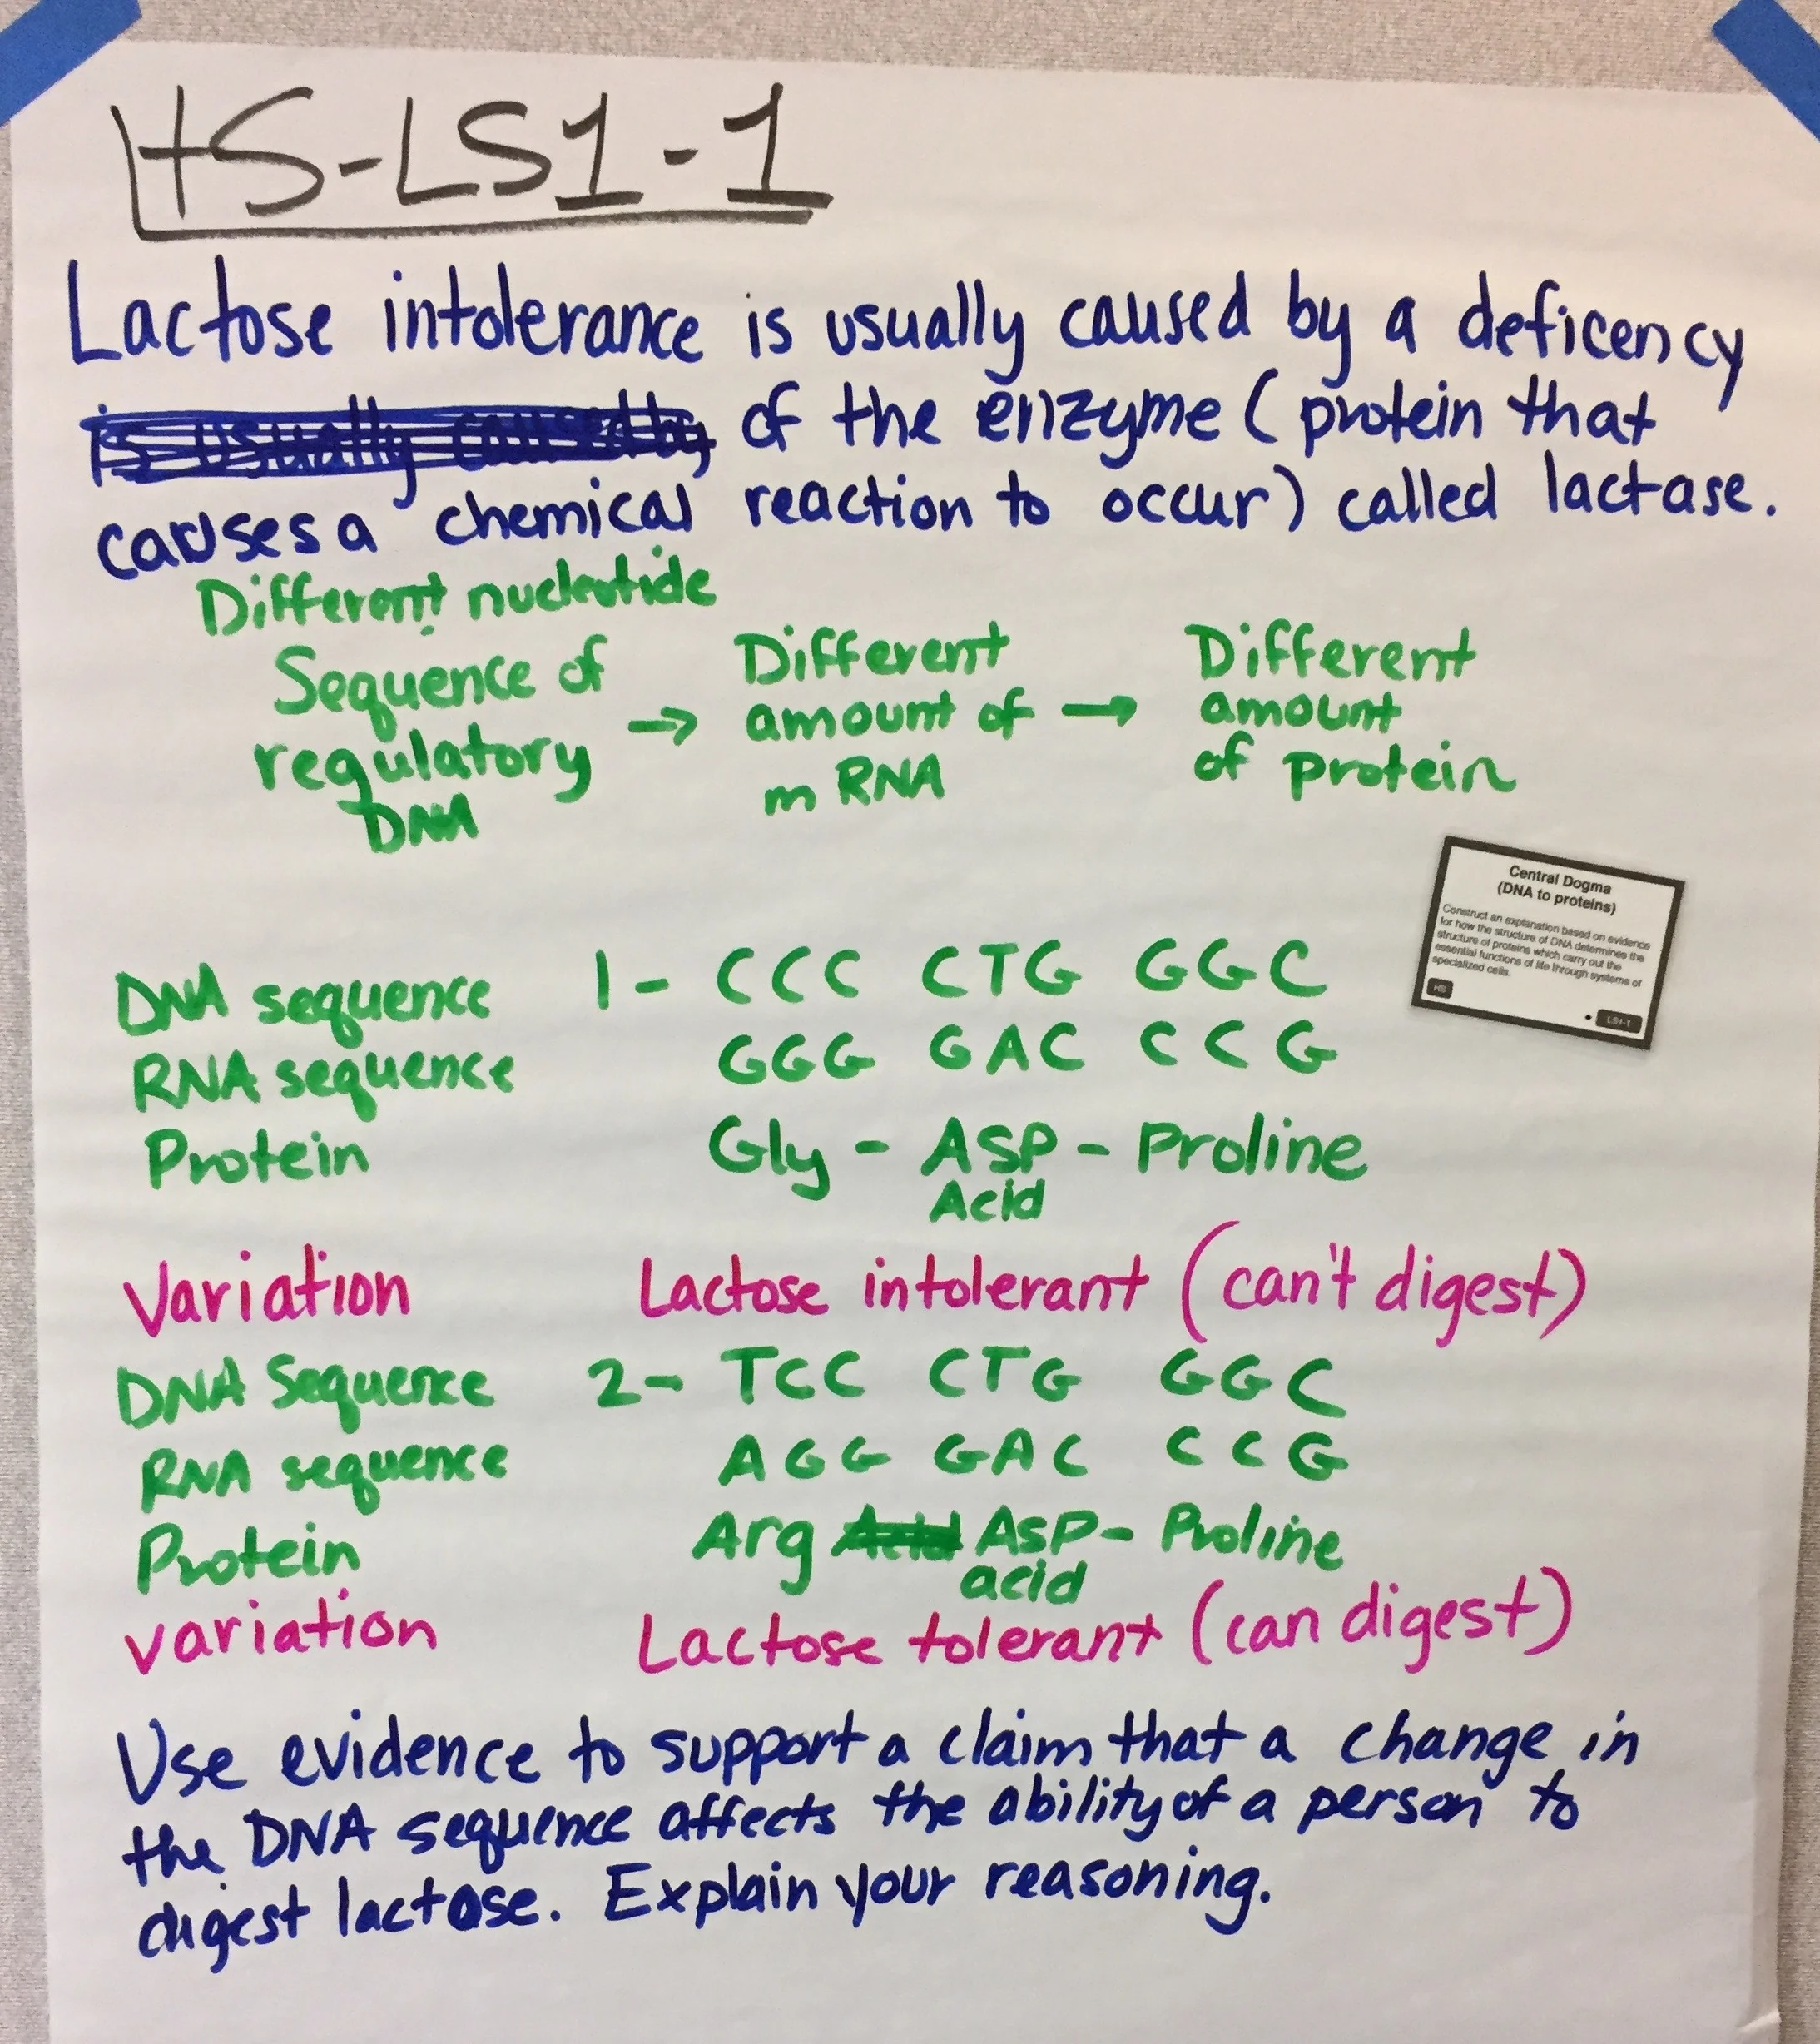 HS-LS1-1
Lactose intolerance is usually caused by a deficency
is usually caused by of the enzyme (protein that
causes a chemical reaction to occur) called lactase.
Different nucleotide
Sequence of
regulatory
DNA
→
Different
amount of
mRNA
→
Different
amount
of protein
Central Dogma
(DNA to proteins)
Construct an explanation based on evidence
for how the structure of DNA determines the
structure of proteins which carry out the
essential functions of life through systems of
specialized cells.
HS
• LS1-1
DNA sequence 1- CCC CTG GGC
RNA sequence GGG GAC CCG
Protein Gly - ASP - Proline
Acid
Variation Lactose intolerant (can't digest)
DNA Sequence 2- TCC CTG GGC
RNA sequence AGG GAC CCG
Protein Arg Acid Asp- Proline
acid
variation Lactose tolerant (can digest)
Use evidence to support a claim that a change in
the DNA sequence affects the ability of a person to
digest lactose. Explain your reasoning.